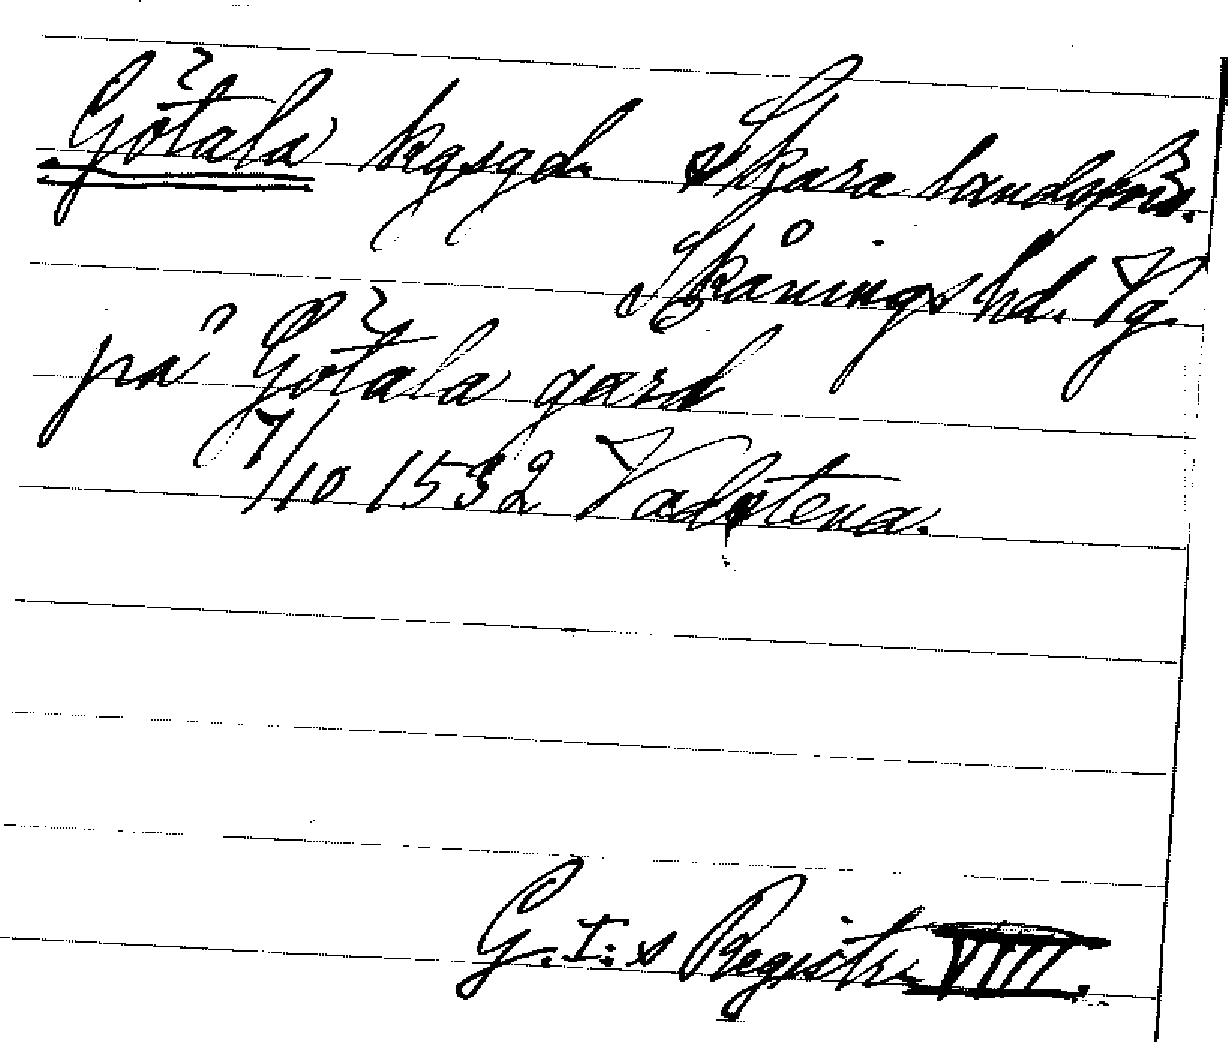 Götala kgsgd. Skara landsfös.
Skånings hd. Vg.
på Götala gård
7/10 1532 Vadstena.
G. I:s Registr. VIII.